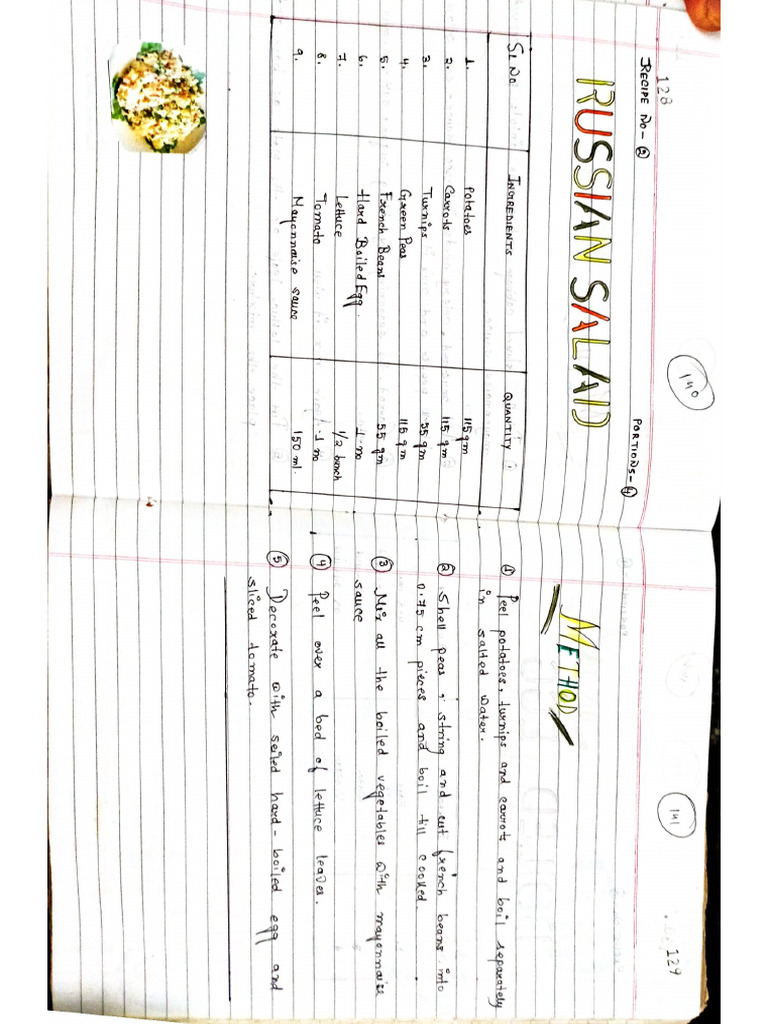 128
140
RECIPE NO- ②
PORTIONS- ④
RUSSIAN SALAD
Sl No. INGREDIENTS QUANTITY
1. Potatoes 115 gm
2. Carrots 115 gm
3. Turnips 55 gm
4. Green Peas 115 gm
5. French Beans 55 gm
6. Hard Boiled Egg. 1 no
7. Lettuce 1/2 bunch
8. Tomato 1 no
9. Mayonnaise sauce 150 ml.
141
129
METHOD
① Peel potatoes, turnips and carrots and boil separately
in salted water.
② Shell peas, string and cut french beans into
0.75 cm pieces and boil till cooked.
③ Mix all the boiled vegetables with mayonnaise
sauce
④ Peel over a bed of lettuce leaves.
⑤ Decorate with seiled hard-boiled egg and
sliced tomato.